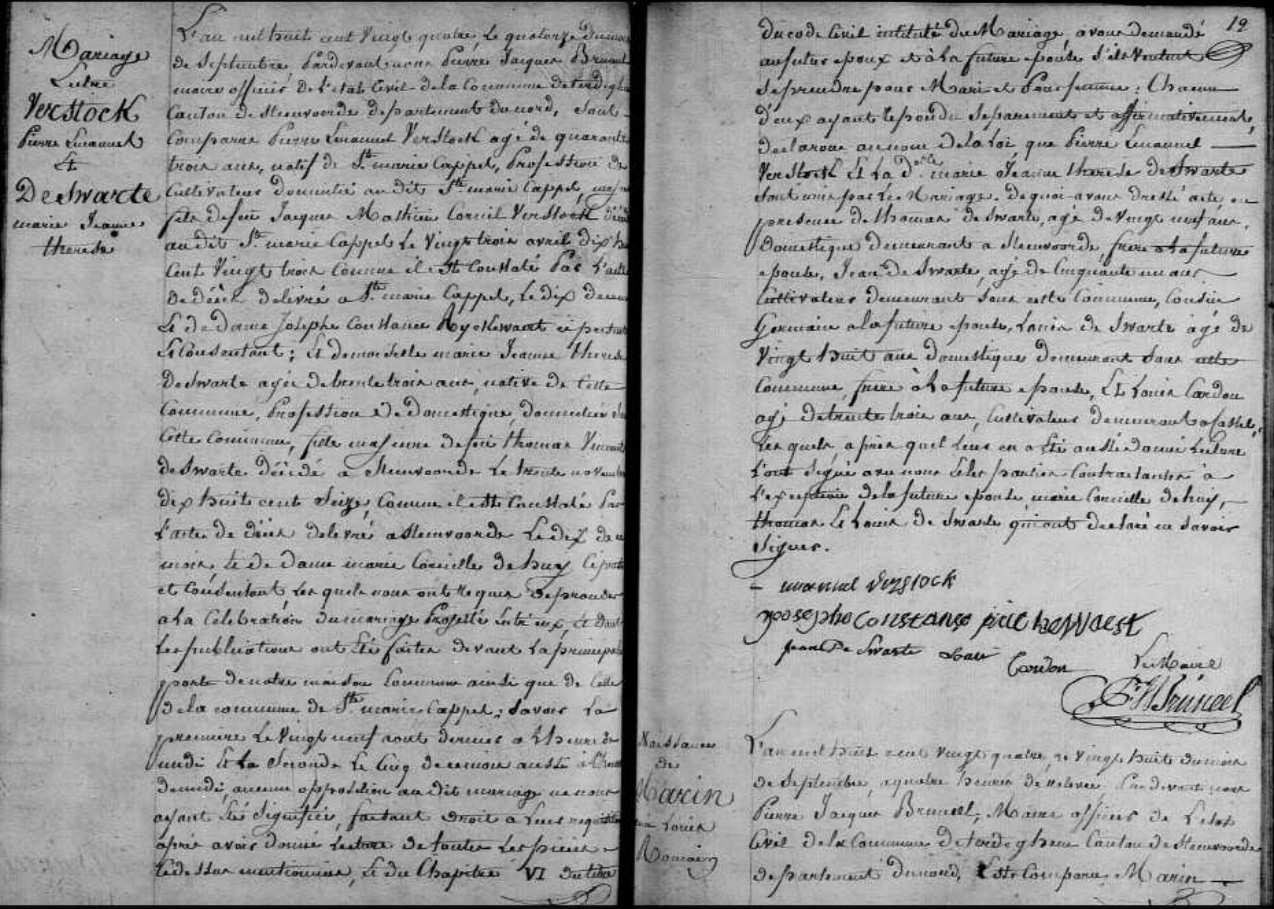 Mariage
Entre
Verstock
Pierre Emanuel
&
De Swarte
marie Jeanne
therese
L'an mil huit cent vingt quatre le quatorze du mois
de Septembre Pardevant nous Pierre Jacques Bruneel
maire officier de l'etat Civil de la Commune de terdeghem
Canton de Steenvoorde departement du nord, Sont
Comparus Pierre Emanuel Verstock agé de quarante
trois ans, natif de Ste marie Cappel, Profession de
Cultivateur domicilié au dit Ste marie Cappel, majeur
fils de feu Jacques Mathieu Corneil Verstock décédé
au dit Ste marie Cappel Le vingt trois avril dix huit
Cent vingt trois comme il est Constaté Par L'acte
de décès delivré a Ste marie Cappel, Le dix de ce mois
Et de Dame Josephe Constance Ryckewaert ci presente
Et Consentant; Et demoiselle marie Jeanne therese
De Swarte agée de trente trois ans, native de Cette
Commune, Profession de domestique, domiciliée en
Cette Commune, fille majeure de feu thomas Vincent
de Swarte décédé à Steenvoorde Le trente novembre
dix huit cent Seize, Comme il est Constaté Par
L'acte de décès délivré a Steenvoorde Le dix de ce
mois, Et de Dame marie Corneille de huy Ci presente
et Consentant Les quels nous ont Requis de proceder
a la Celebration du mariage Projetté Entr'eux, Et dont
Les publications ont été faites devant La principale
porte de notre maison Commune ainsi que de Celle
de la commune de Ste marie Cappel; Savoir La
premiere Le Vingt neuf aout dernier a L'heure de
midi Et La Seconde Le Cinq de ce mois aussi a L'heure
de midi, aucune opposition au dit mariage ne nous
ayant été Signifiée, faisant Droit à Leur requisition
après avoir donné Lecture de toutes Les pièces
Ci dessus mentionnées, Et du Chapitre VI du titre
19
du code Civil intitulé du Mariage, avons demandé
au futur epoux et à la future epouse s'ils veulent
se prendre pour Mari et Pour femme; Chacun
d'eux ayant repondu separement et affirmativement,
declarons au nom de la Loi que Pierre Emanuel
Verstock Et La Delle marie Jeanne therese de Swarte
sont unis par Le Mariage. De quoi avons dressé acte, en
presence de thomas de Swarte, agé de vingt neuf ans,
domestique demeurant a Steenvoorde, frere a la future
epouse, Jean de Swarte, agé de Cinquante un ans
Cultivateur demeurant Sous cette Commune, Cousin
Germain a la future epouse, Louis de Swarte agé de
Vingt huit ans domestique demeurant Sous cette
Commune, frere à la future epouse, Et Louis Cardon
agé de trente trois ans, Cultivateur demeurant a Cassel,
Les quels après qu'il Leur en a été aussi donné Lecture
L'ont signé avec nous Et Les parties Contractantes à
L'exception de la future epouse marie Corneille de huy,
thomas Et Louis de Swarte qui ont declaré ne savoir
Signer.
emanuel verstock
yosephe Constanse
jean De Swarte Louis Cardon
Le Maire
P. J. Bruneel
Naissance
de
Marin
Louis
Romain
L'an mil huit cent vingt quatre le vingt huit du mois
de Septembre, a quatre heures de relevée Par devant nous
Pierre Jacques Bruneel, Maire officier de L'etat
Civil de la Commune de terdeghem Canton de Steenvoorde
departement du nord, Est Comparu Marin